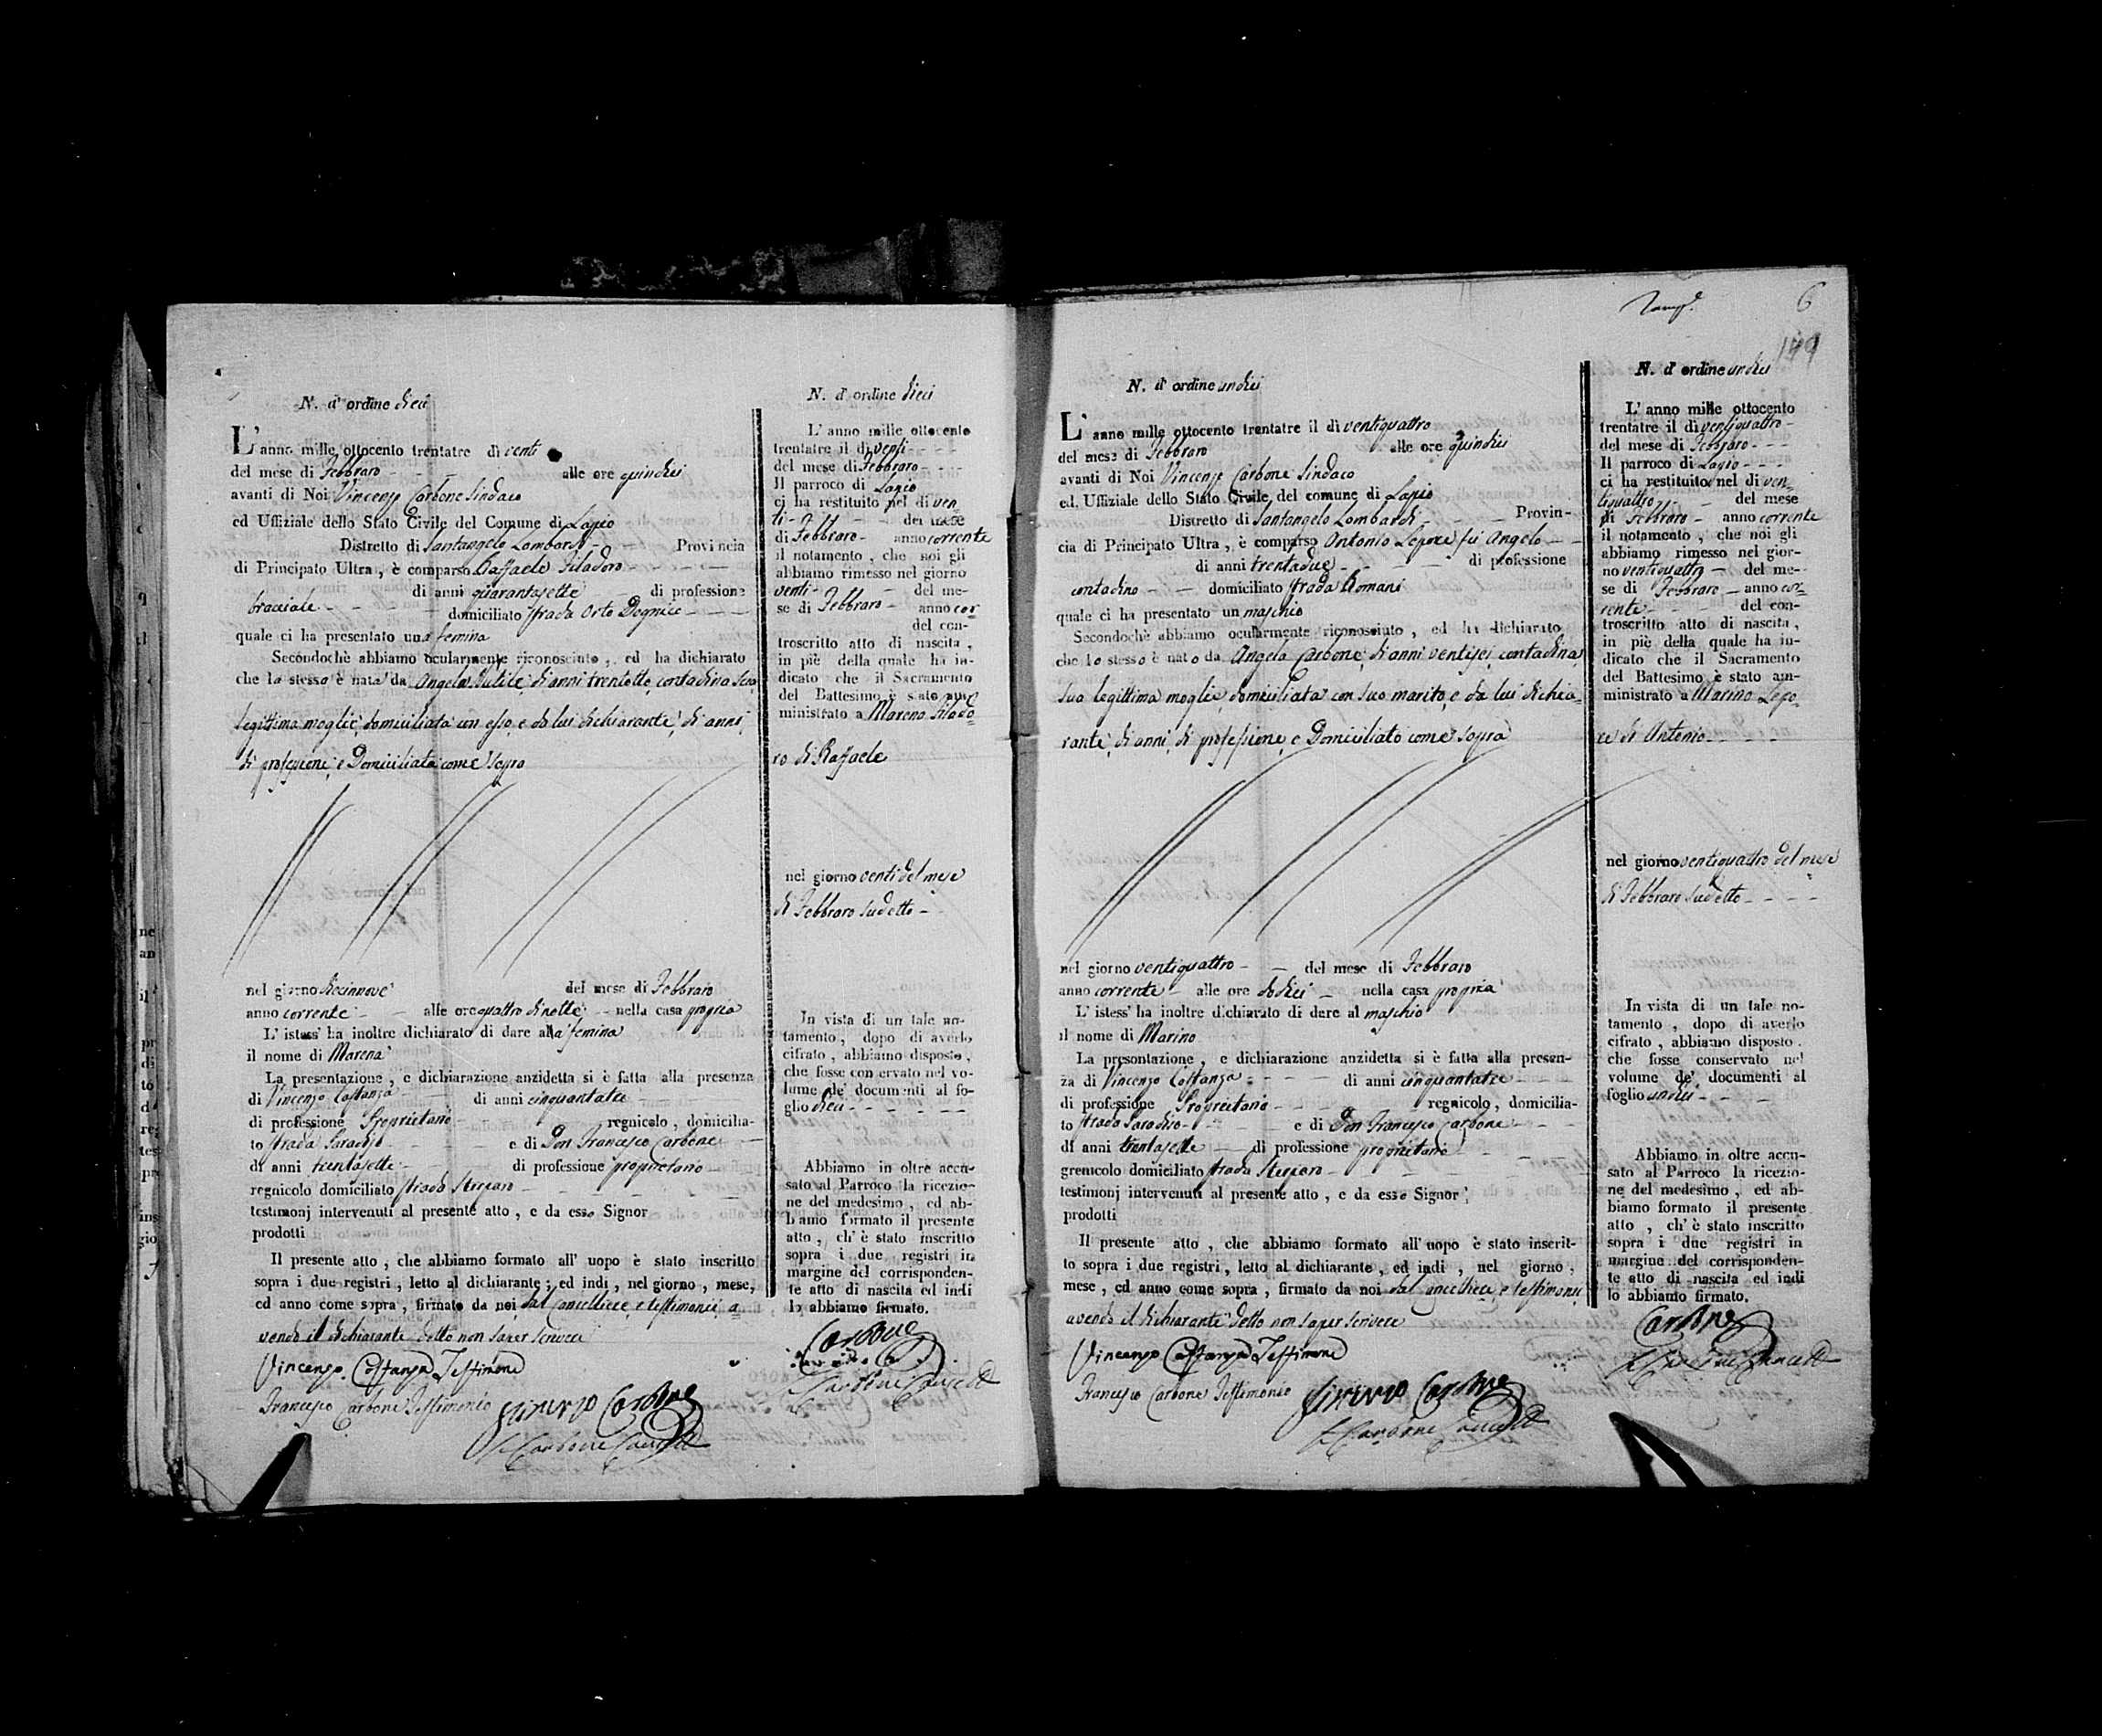 N. d' ordine dieci
L' anno mille ottocento trentatre dì venti
del mese di Febbraro alle ore quindici
avanti di Noi Vincenzo Carbone Sindaco
ed Uffiziale dello Stato Civile del Comune di Lapio
Distretto di Santangelo Lombardi Provincia
di Principato Ultra , è comparso Raffaele Filadoro
di anni quarantasette di professione
bracciale domiciliato strada Orto
quale ci ha presentato una femina
Secondochè abbiamo ocularmente riconosciuto , ed ha dichiarato
che la stessa è nata da Angela di anni trentotto, contadina sua
legittima moglie, domiciliata con esso, e da lui dichiarante, di anni,
di professione, e Domiciliata come sopra
nel giorno diecinnove del mese di Febbraro
anno corrente alle ore quattro di notte nella casa propria
L' istess' ha inoltre dichiarato di dare alla femina
il nome di Marena
La presentazione , e dichiarazione anzidetta si è fatta alla presenza
di Vincenzo Costanza di anni cinquantatre
di professione Proprietario regnicolo , domicilia-
to strada Paradiso e di Don Francesco Carbone
di anni trentasette di professione proprietario
regnicolo domiciliato strada
testimonj intervenuti al presente atto , e da esso Signor
prodotti
Il presente atto , che abbiamo formato all' uopo è stato inscritto
sopra i due registri , letto al dichiarante , ed indi , nel giorno , mese,
ed anno come sopra , firmato da noi dal Cancelliere, e testimonii, a=
vendo il dichiarante detto non saper scrivere
Vincenzo Costanza Testimone
Francesco Carbone Testimonio Vincenzo Carbone
Carbone Cancell
N. d' ordine dieci
L' anno mille ottocento
trentatre il dì venti
del mese di Febbraro
Il parroco di Lapio
ci ha restituito nel dì ven
ti del mese
di Febbraro anno corrente
il notamento , che noi gli
abbiamo rimesso nel giorno
venti del me-
se di Febbraro anno cor
del con-
troscritto atto di nascita ,
in piè della quale ha in-
dicato che il Sacramento
del Battesimo è stato am-
ministrato a Marena Filado=
ro di Raffaele
nel giorno venti del mese
di Febbraro sudetto
In vista di un tale no-
tamento , dopo di averlo
cifrato , abbiamo disposto ,
che fosse conservato nel vo-
lume de' documenti al fo-
glio dieci
Abbiamo in oltre accu-
sato al Parroco la ricezio-
ne del medesimo , ed ab-
biamo formato il presente
atto , ch' è stato inscritto
sopra i due registri in
margine del corrisponden-
te atto di nascita ed indi
lo abbiamo firmato.
Carbone
Carbone Cancell
6
199
N. d' ordine undici
L' anno mille ottocento trentatre il dì ventiquattro
del mese di Febbraro alle ore quindici
avanti di Noi Vincenzo Carbone Sindaco
ed Uffiziale dello Stato Civile del comune di Lapio
Distretto di Santangelo Lombardi Provin-
cia di Principato Ultra , è comparso Antonio Lepore fu Angelo
di anni trentadue di professione
contadino domiciliato strada Romani
quale ci ha presentato un maschio
Secondochè abbiamo ocularmente riconosciuto , ed ha dichiarato
che lo stesso è nato da Angela Carbone, di anni ventisei, contadina,
sua legittima moglie, domiciliata con suo marito, e da lui dichia=
rante, di anni, di professione, e Domiciliato come sopra
nel giorno ventiquattro del mese di Febbraro
anno corrente alle ore dodici nella casa propria
L' istess' ha inoltre dichiarato di dare al maschio
il nome di Marino
La presentazione , e dichiarazione anzidetta si è fatta alla presen-
za di Vincenzo Costanza di anni cinquantatre
di professione Proprietario regnicolo , domicilia-
to strada Paradiso e di Don Francesco Carbone
di anni trentasette di professione proprietario
grenicolo domiciliato strada
testimonj intervenuti al presente atto , e da esso Signor
prodotti
Il presente atto , che abbiamo formato all' uopo è stato inscrit-
to sopra i due registri , letto al dichiarante , ed indi , nel giorno ,
mese , ed anno come sopra , firmato da noi dal Cancelliere, e testimonii,
avendo il dichiarante detto non saper scrivere
Vincenzo Costanza Testimone
Francesco Carbone Testimonio Vincenzo Carbone
Carbone Cancell
N. d' ordine undici
L' anno mille ottocento
trentatre il dì ventiquattro
del mese di Febbraro
Il parroco di Lapio
ci ha restituito nel dì ven=
tiquattro del mese
di Febbraro anno corrente
il notamento , che noi gli
abbiamo rimesso nel gior-
no ventiquattro del me-
se di Febbraro anno cor=
rente del con-
troscritto atto di nascita ,
in piè della quale ha in-
dicato che il Sacramento
del Battesimo è stato am-
ministrato a Marino Lepo=
re di Antonio
nel giorno ventiquattro del mese
di Febbraro sudetto
In vista di un tale no-
tamento , dopo di averlo
cifrato , abbiamo disposto .
che fosse conservato nel
volume de' documenti al
foglio undici
Abbiamo in oltre accu-
sato al Parroco la ricezio-
ne del medesimo , ed ab-
biamo formato il presente
atto , ch' è stato inscritto
sopra i due registri in
margine del corrisponden-
te atto di nascita ed indi
lo abbiamo firmato.
Carbone
Carbone Cancell